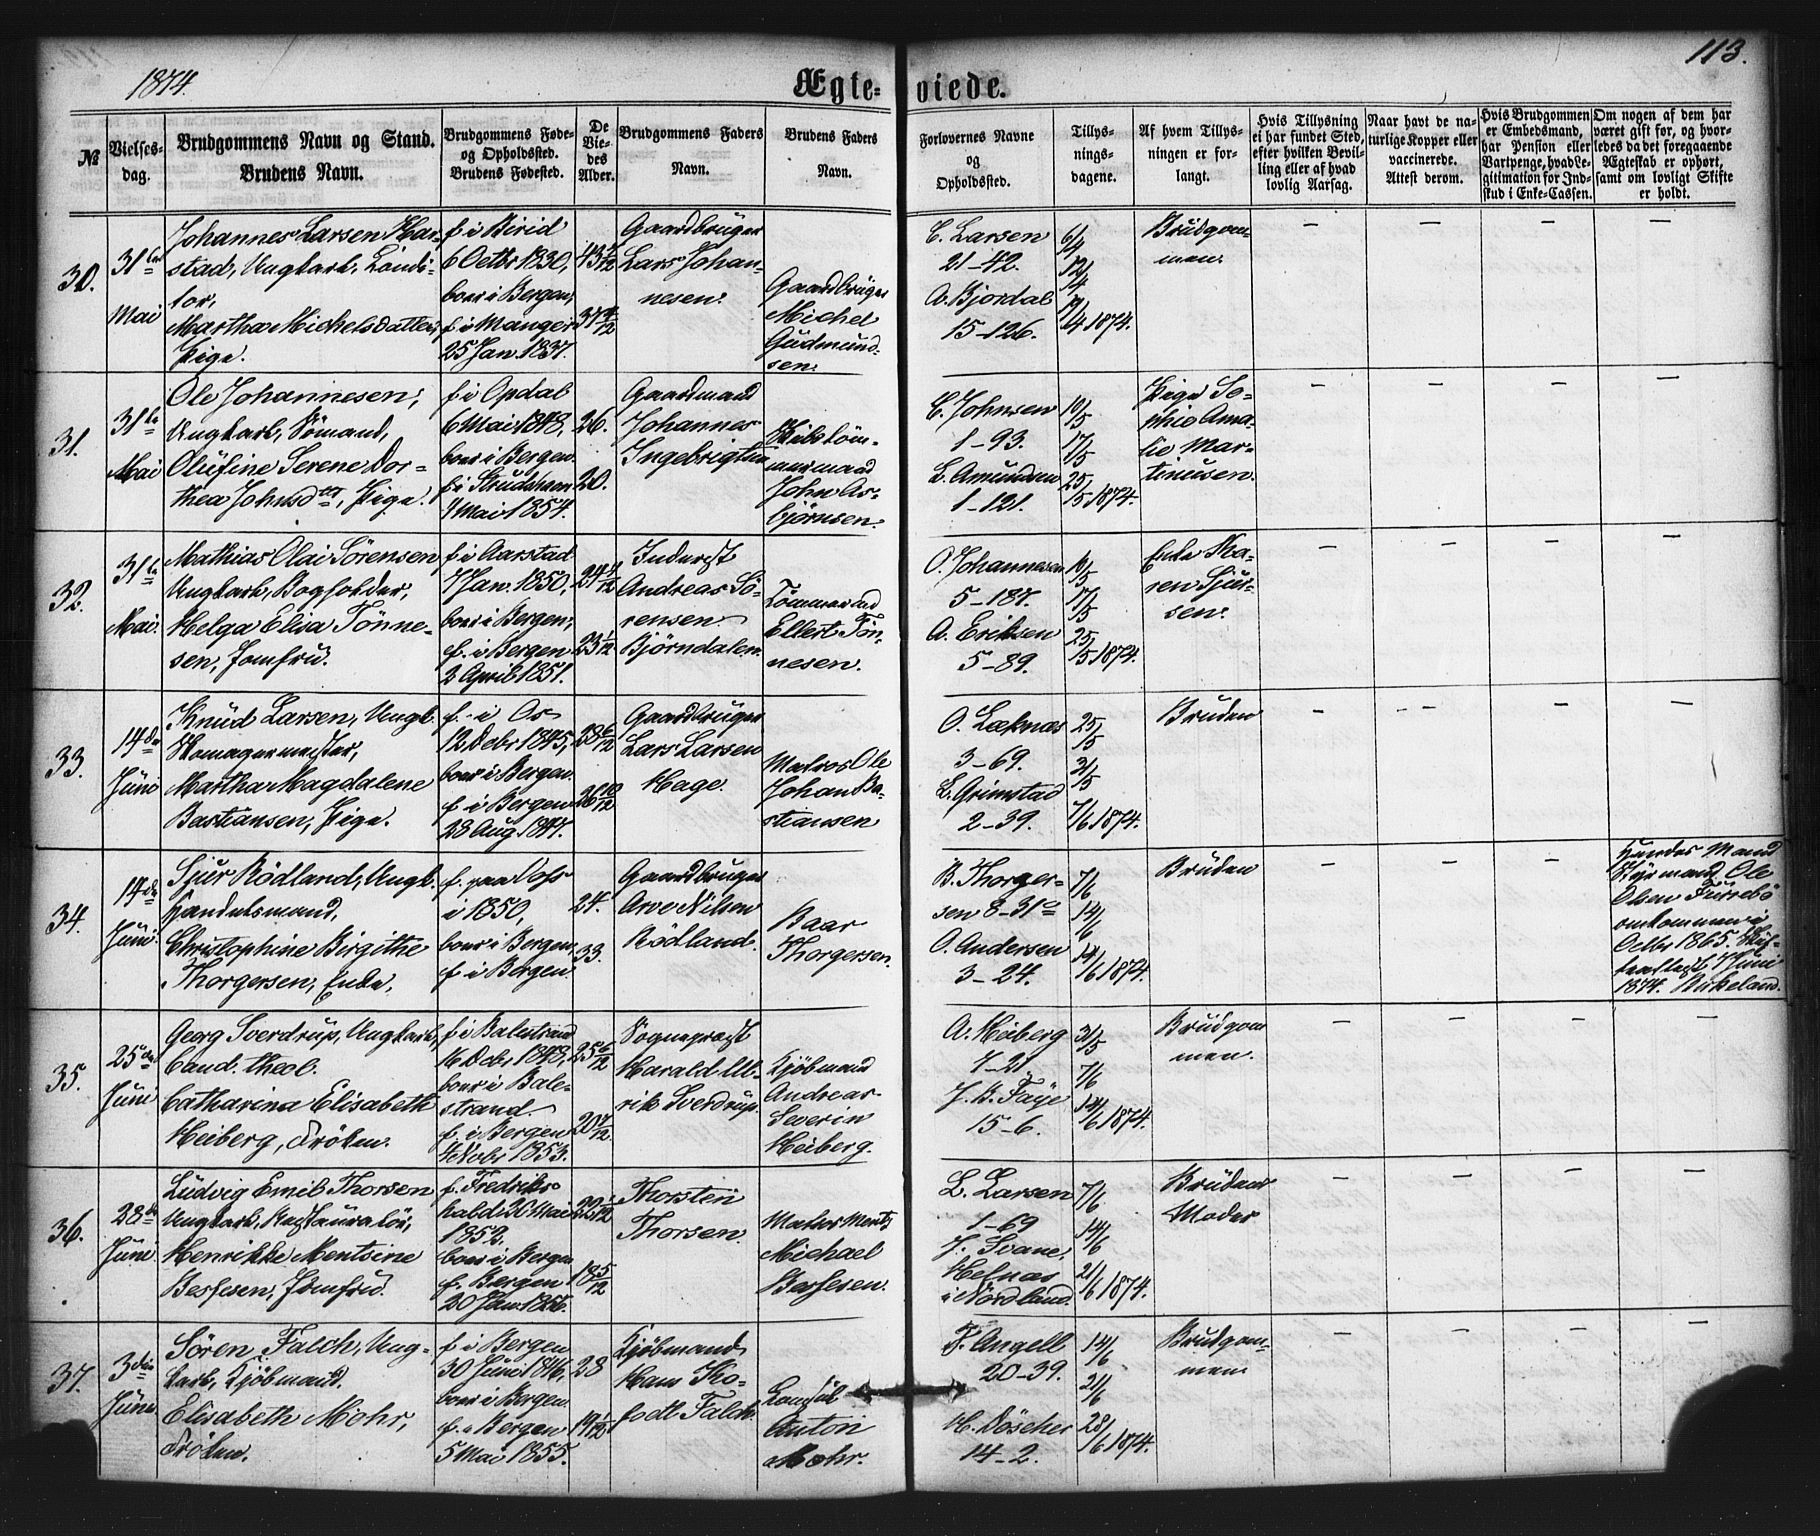 1874.
Ægte-viede.
113.
№
Vielses-
dag.
Brudgommens Navn og Stand.
Brudens Navn.
Brudgommens Føde-
og Opholdssted.
Brudens Fødested.
De
Vie-
des
Alder.
Brudgommens Faders
Navn.
Brudens Faders
Navn.
Forlovernes Navne
og
Opholdssted.
Tillys-
nings-
dagene.
Af hvem Tillys-
ningen er for-
langt.
Hvis Tillysning
ei har fundet Sted,
efter hvilken Bevil-
ling eller af hvad
lovlig Aarsag.
Naar havt de na-
turlige Kopper eller
vaccinerede.
Attest derom.
Hvis Brudgommen
er Embedsmand,
har Pension eller
Vartpenge, hvad Le-
gitimation for Ind-
skud i Enke-Cassen.
Om nogen af dem har
været gift før, og hvor-
ledes da det foregaaende
Ægteskab er ophørt,
samt om lovligt Skifte
er holdt.
30.
31te
Mai
Johannes Larsen Har-
stad, Ungkarl, Condi-
tor,
Martha Michelsdatter,
Pige.
f. i Birid
6 Octbr 1830,
boer i Bergen,
f. i Manger
25 Jan. 1837.
43 5/12
37 4/12
Gaardbruger
Lars Johan-
nesen.
Gaardbruger
Michel
Gudmund-
sen.
C. Larsen
21-42.
A. Bjordal
15-126.
6/4
12/4
19/4 1874.
Brudgom-
men.
31.
31te
Mai
Ole Johannesen,
Ungkarl, Sømand,
Olufine Serene Dor-
thea Johnsdtr, Pige.
f. i Opdal
6 Mai 1848,
boer i Bergen.
f. i Skudehavn
4 Mai 1854.
26.
20.
Gaardmand
Johannes
Ingebrigtsen
Skibstøm-
mermand
John As-
bjørnsen.
C. Johnsen
1-93.
L. Amundsen
1-121.
10/5
17/5
25/5 1874.
Pige So-
phie Ama-
lie Mar-
tinusen.
32.
31te
Mai.
Mathias Olai Sørensen
Ungkarl, Bogholder,
Helga Elisa Tønne-
sen, Jomfru.
f. i Aarstad
7 Jan. 1850,
boer i Bergen,
f. i Bergen
2 April 1851.
24 4/12
23 1/12
Inderst
Andreas Sø-
rensen
Bjørndalen.
Tømmermand
Ellert Tøn-
nesen.
O. Johannesen
5-187.
A. Eriksen
5-89.
10/5
17/5
25/5 1874.
Enke Ka-
ren Sjur-
sen.
33.
14de
Juni
Knud Larsen, Ungk.
Skomagermester,
Martha Magdalene
Bastiansen, Pige.
f. i Os
12 Debr 1845,
boer i Bergen.
f. i Bergen
28 Aug. 1847.
28 6/12
26 10/12
Gaardbruger
Lars Larsen
Hage.
Matros Ole
Johan Ba-
stiansen
O. Løknæs
3-69.
L. Grimstad
2-39.
25/5
31/5
7/6 1874.
Bruden
34.
14de
Juni.
Sjur Rødland, Ungk.
Handelsmand,
Christophine Birgithe
Thorgersen, Enke.
f. paa Voss
i 1850,
boer i Bergen,
f. i Bergen
24.
33.
Gaardbruger
Arve Nilsen
Rødland.
Baar
Thorgersen.
B. Thorger-
sen 8-31c
O. Andersen
3-24.
7/6
14/6
14/6 1874.
Bruden
Hendes Mand
Styrmand Ole
Olsen Furrebø
omkommen i
Octbr 1865. Skif-
teattest 7 Juni
1874. Birkeland.
35.
25de
Juni
Georg Sverdrup, Ungkarl,
Cand. theol.
Catharina Elisabeth
Heiberg, Frøken.
f. i Balestrand
16 Debr 1848,
boer i Bale-
strand.
f. i Bergen
4 Novbr 1853.
25 6/12
20 7/12
Sogneprest
Harald Ul-
rik Sverdrup.
Kjøbmand
Andreas
Severin
Heiberg.
A. Heiberg
7-21.
J. B. Faye
15-6.
31/5
7/6
14/6 1874.
Brudgom
men.
36.
28de
Juni
Ludvig Emil Thorsen
Ungkarl, Restauratør,
Henrikke Mentsine
Besfesen, Jomfru.
f. Fredriks-
hald 26 Mai
1852.
boer i Bergen
f. Bergen
20 Jan. 1856.
22 1/12
18 5/12
Thorsten
Thorsen.
Mentz
Michael
L. Larsen
1-69
J. Svane,
Helnæs
i Nordland.
7/6
14/6
21/6 1874.
Brudens
Moder
37.
3die
Juni
Søren Falch, Ung-
karl, Kjøbmand.
Elisabeth Mohr,
Frøken.
f. i Bergen
30 Juni 1846,
boer i Bergen.
f. i Bergen
5 Mai 1855.
28
19 1/12
Kjøbmand
Hans Tho-
dtl Falch.
Consul
Anton
Mohr.
F. Angell
20-39.
H. Döscher
14-2.
14/6
21/6
28/6 1874.
Brudgom-
men